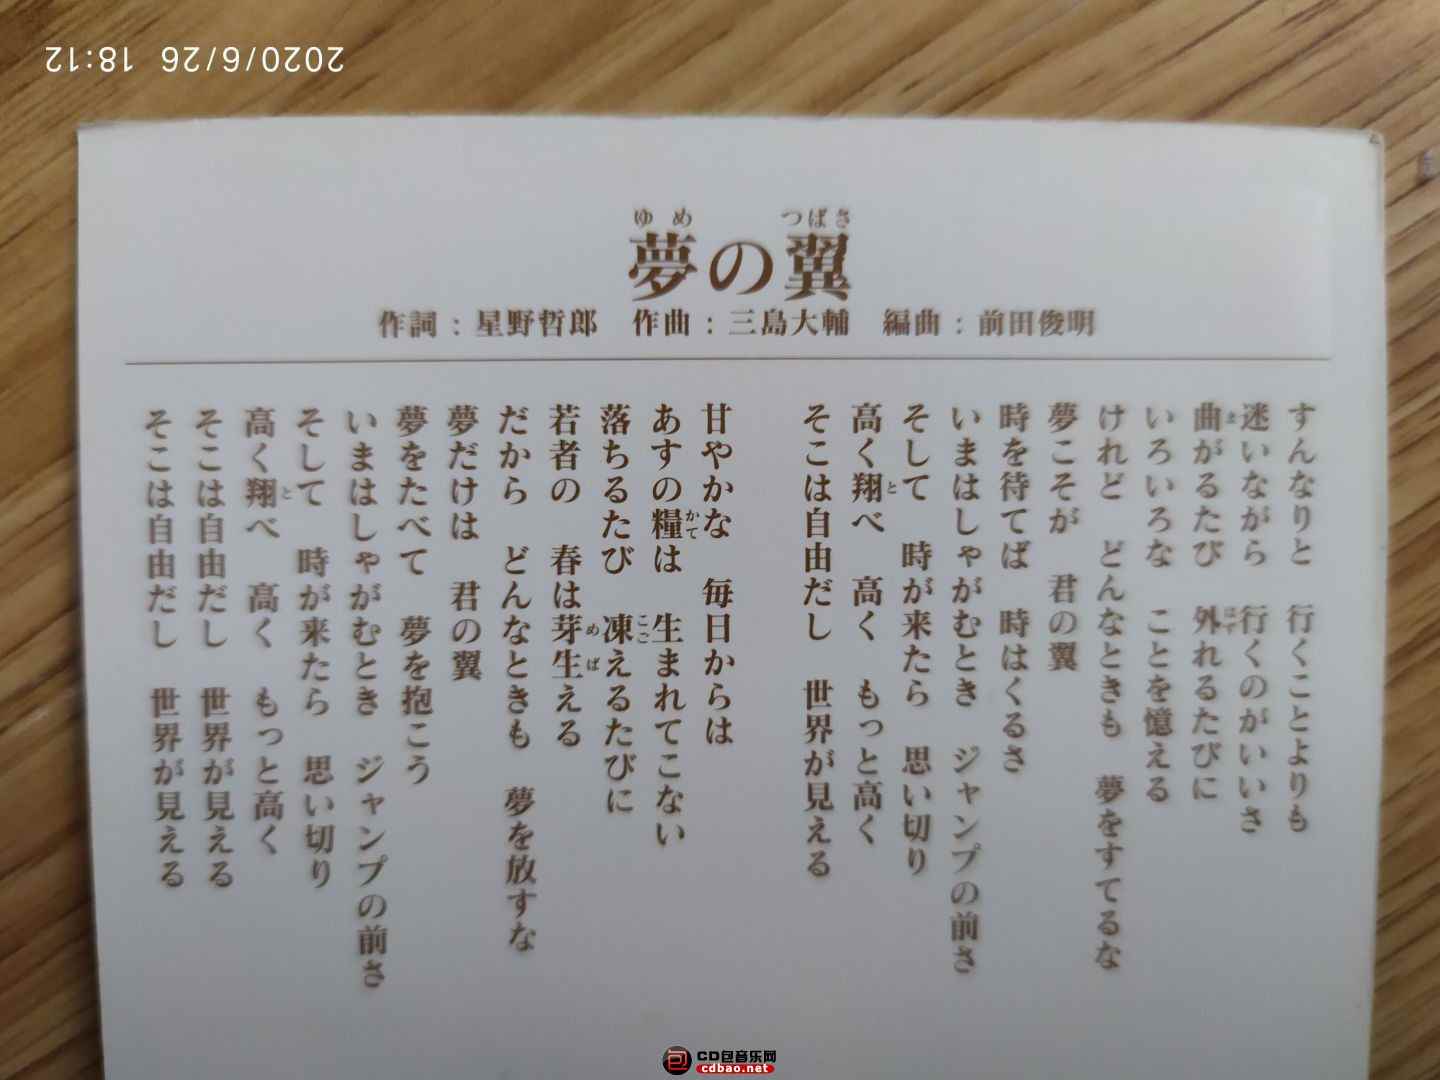 2020/6/26 18:12
ゆめ つばさ
夢の翼
作詞：星野哲郎 作曲：三島大輔 編曲：前田俊明
すんなりと 行くことよりも
迷いながら 行くのがいいさ
曲がるたび 外れるたびに
ま はず
いろいろな ことを憶える
けれど どんなときも 夢をすてるな
夢こそが 君の翼
時を待てば 時はくるさ
いまはしゃがむとき ジャンプの前さ
そして 時が来たら 思い切り
高く翔べ 高く もっと高く
と
そこは自由だし 世界が見える
甘やかな 毎日からは
あすの糧は 生まれてこない
かて
落ちるたび 凍えるたびに
こご
若者の 春は芽生える
めば
だから どんなときも 夢を放すな
夢だけは 君の翼
夢をたべて 夢を抱こう
いまはしゃがむとき ジャンプの前さ
そして 時が来たら 思い切り
高く翔べ 高く もっと高く
と
そこは自由だし 世界が見える
そこは自由だし 世界が見える
CD包音乐网
cdbao.net